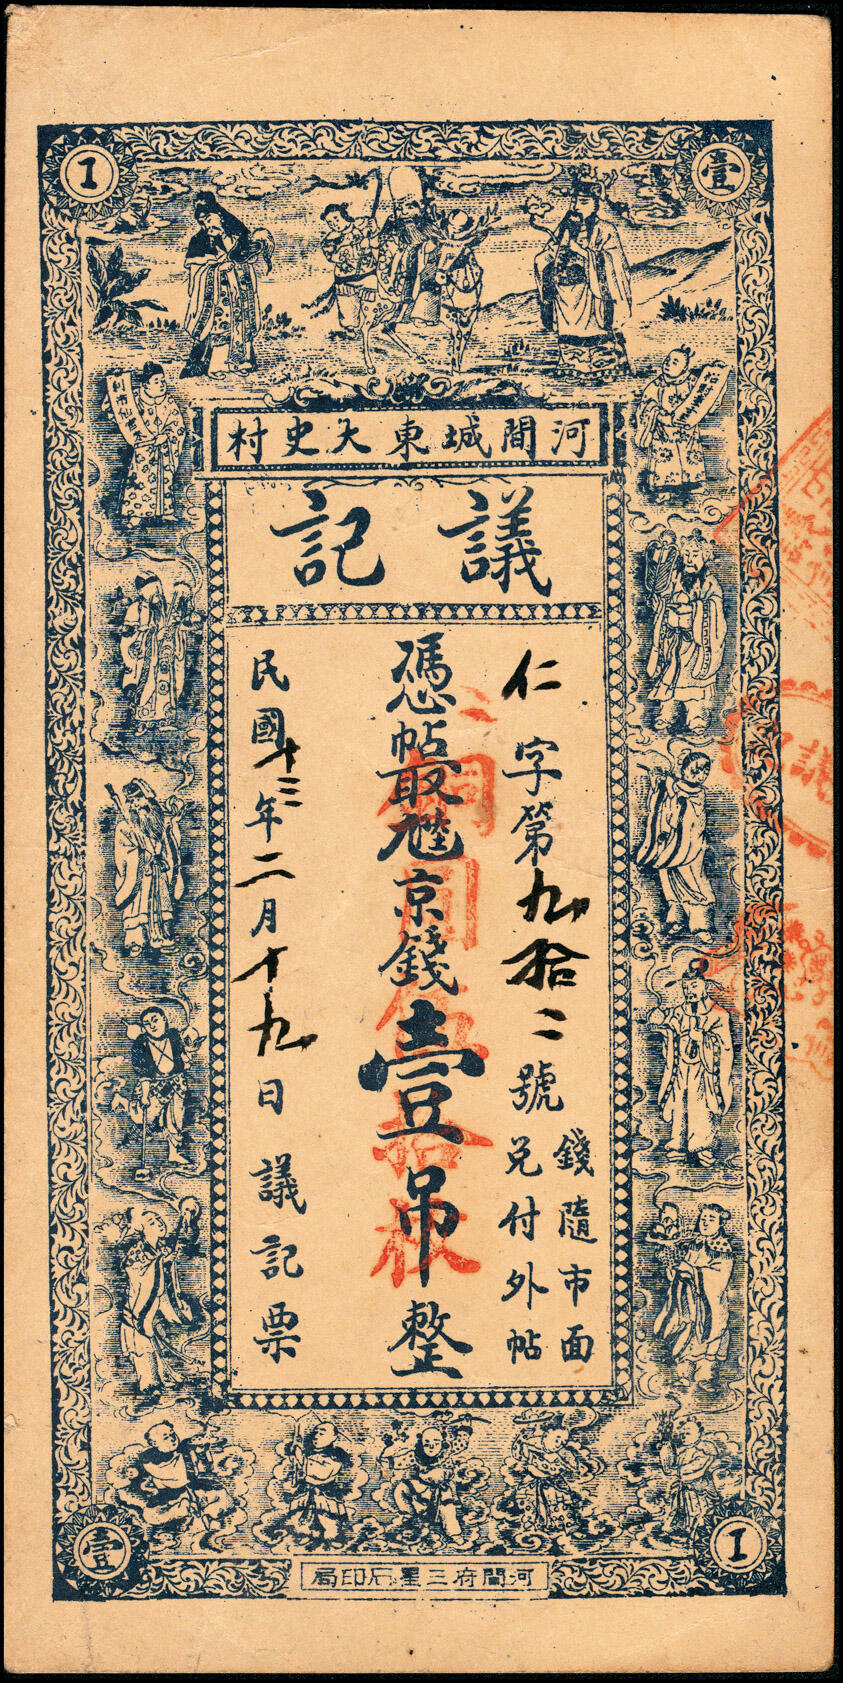 I
壹
河間城東大史村
議記
仁字第九拾二號
錢隨市面
兌付外帖
憑帖取
京錢壹吊整
銅元伍拾枚
民國十三年二月十九日議記票
壹
I
河間府三星石印局